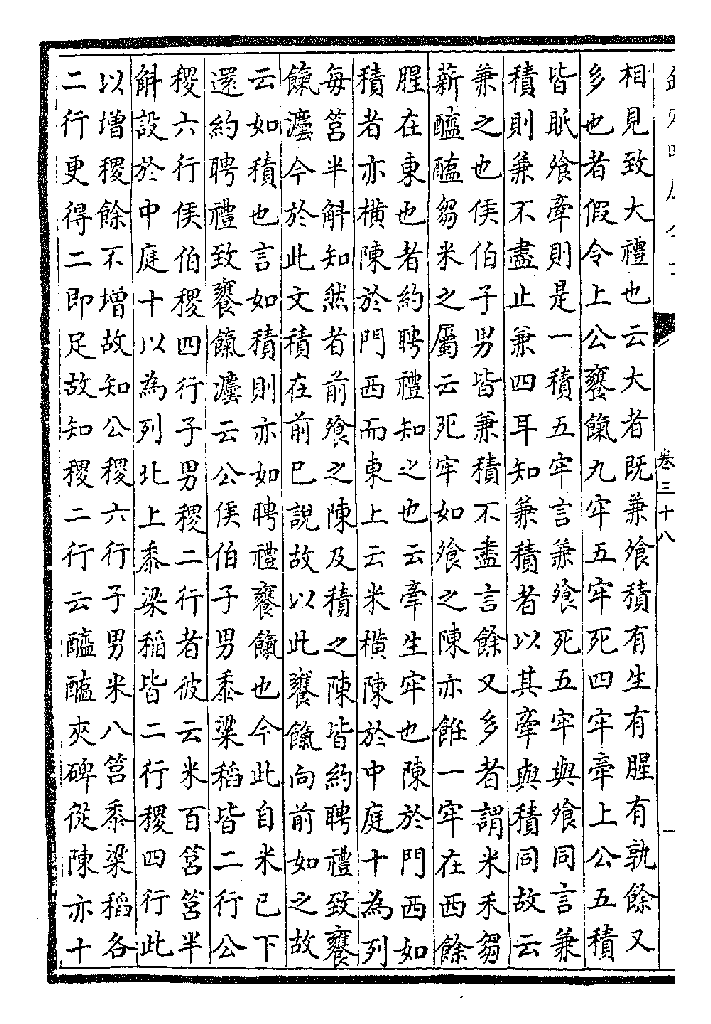 卷三十八
相見致大禮也云大者既兼飱積有生有腥有孰餘又
多也者假令上公饔餼九牢五牢死四牢牽上公五積
皆眡飱牽則是一積五牢言兼飱死五牢與飱同言兼
積則兼不盡止兼四耳知兼積者以其牽與積同故云
兼之也侯伯子男皆兼積不盡言餘又多者謂米禾芻
薪醯醢芻米之屬云死牢如飱之陳亦飪一牢在西餘
腥在東也者約聘禮知之也云牽生牢也陳於門西如
積者亦橫陳於門西而東上云米橫陳於中庭十為列
每筥半斛知然者前飱之陳及積之陳皆約聘禮致饔
餼灋今於此文積在前已說故以此饔餼向前如之故
云如積也言如積則亦如聘禮饔餼也今此自米已下
還約聘禮致饔餼灋云公侯伯子男黍梁稻皆二行公
稷六行侯伯稷四行子男稷二行者彼云米百筥筥半
斛設於中庭十以為列北上黍梁稻皆二行稷四行此
以增稷餘不增故知公稷六行子男米八筥黍梁稻各
二行更得二即足故知稷二行云醯醢夾碑從陳亦十